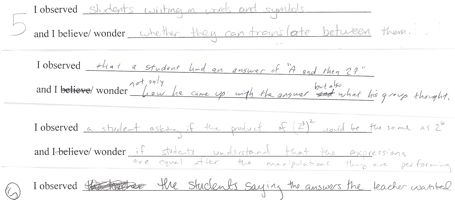 5
I observed students writing in words and symbols
and I believe/ wonder whether they can translate between them.
I observed that a student had an answer of "A and then 2?"
and I believe/ wonder not only how he came up with the answer but also what his group thought.
I observed a student asking if the product of (2³)² would be the same as 2⁶
and I believe/ wonder if students understand that the expressions
are equal after the manipulations they are performing
I observed the students saying the answers the teacher wanted